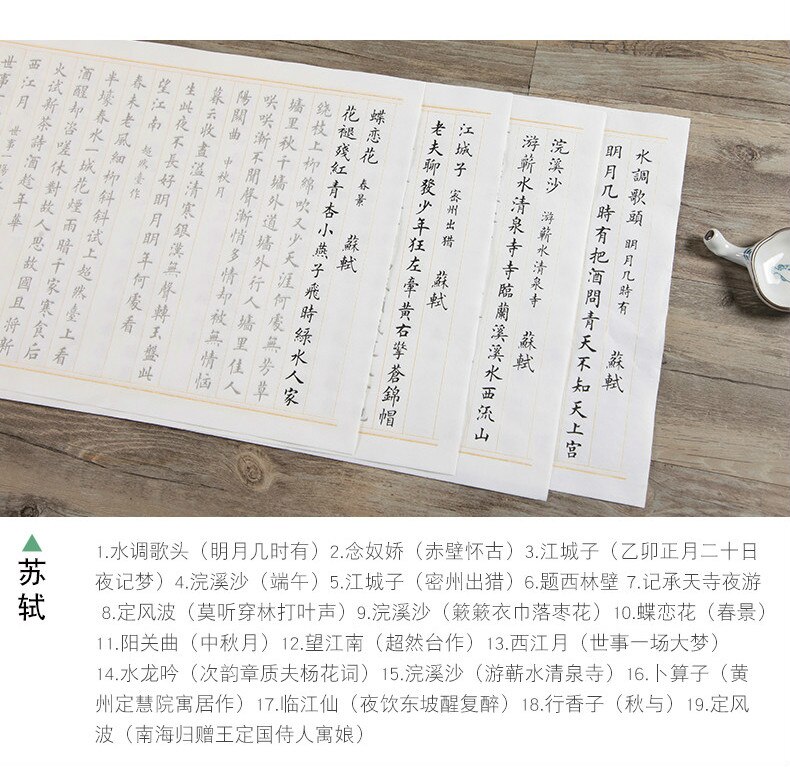 水調歌頭 明月几時有 蘇軾
明月几時有把酒問青天不知天上宮
浣溪沙 游蘄水清泉寺 蘇軾
游蘄水清泉寺寺臨蘭溪溪水西流山
江城子 密州出猎 蘇軾
老夫聊發少年狂左牽黄右擎蒼錦帽
蝶恋花 春景 蘇軾
花褪殘紅青杏小燕子飛時綠水人家
绕枝上柳綿吹又少天涯何處無芳草
墻里秋千墻外道墻外行人墻里佳人
咲咲漸不聞聲漸悄多情却被無情惱
陽關曲 中秋月
暮云收盡溢清寒銀漢無聲轉玉盤此
生此夜不長好明月明年何處看
望江南 超然臺作
春未老風細柳斜斜試上超然臺上看
半壕春水一城花煙雨暗千家寒食后
酒醒却咨嗟休對故人思故國且將新
火試新茶詩酒趁年華
西江月 世事一場
世事
苏轼
1.水调歌头（明月几时有）2.念奴娇（赤壁怀古）3.江城子（乙卯正月二十日
夜记梦）4.浣溪沙（端午）5.江城子（密州出猎）6.题西林壁 7.记承天寺夜游
8.定风波（莫听穿林打叶声）9.浣溪沙（簌簌衣巾落枣花）10.蝶恋花（春景）
11.阳关曲（中秋月）12.望江南（超然台作）13.西江月（世事一场大梦）
14.水龙吟（次韵章质夫杨花词）15.浣溪沙（游蕲水清泉寺）16.卜算子（黄
州定慧院寓居作）17.临江仙（夜饮东坡醒复醉）18.行香子（秋与）19.定风
波（南海归赠王定国侍人寓娘）